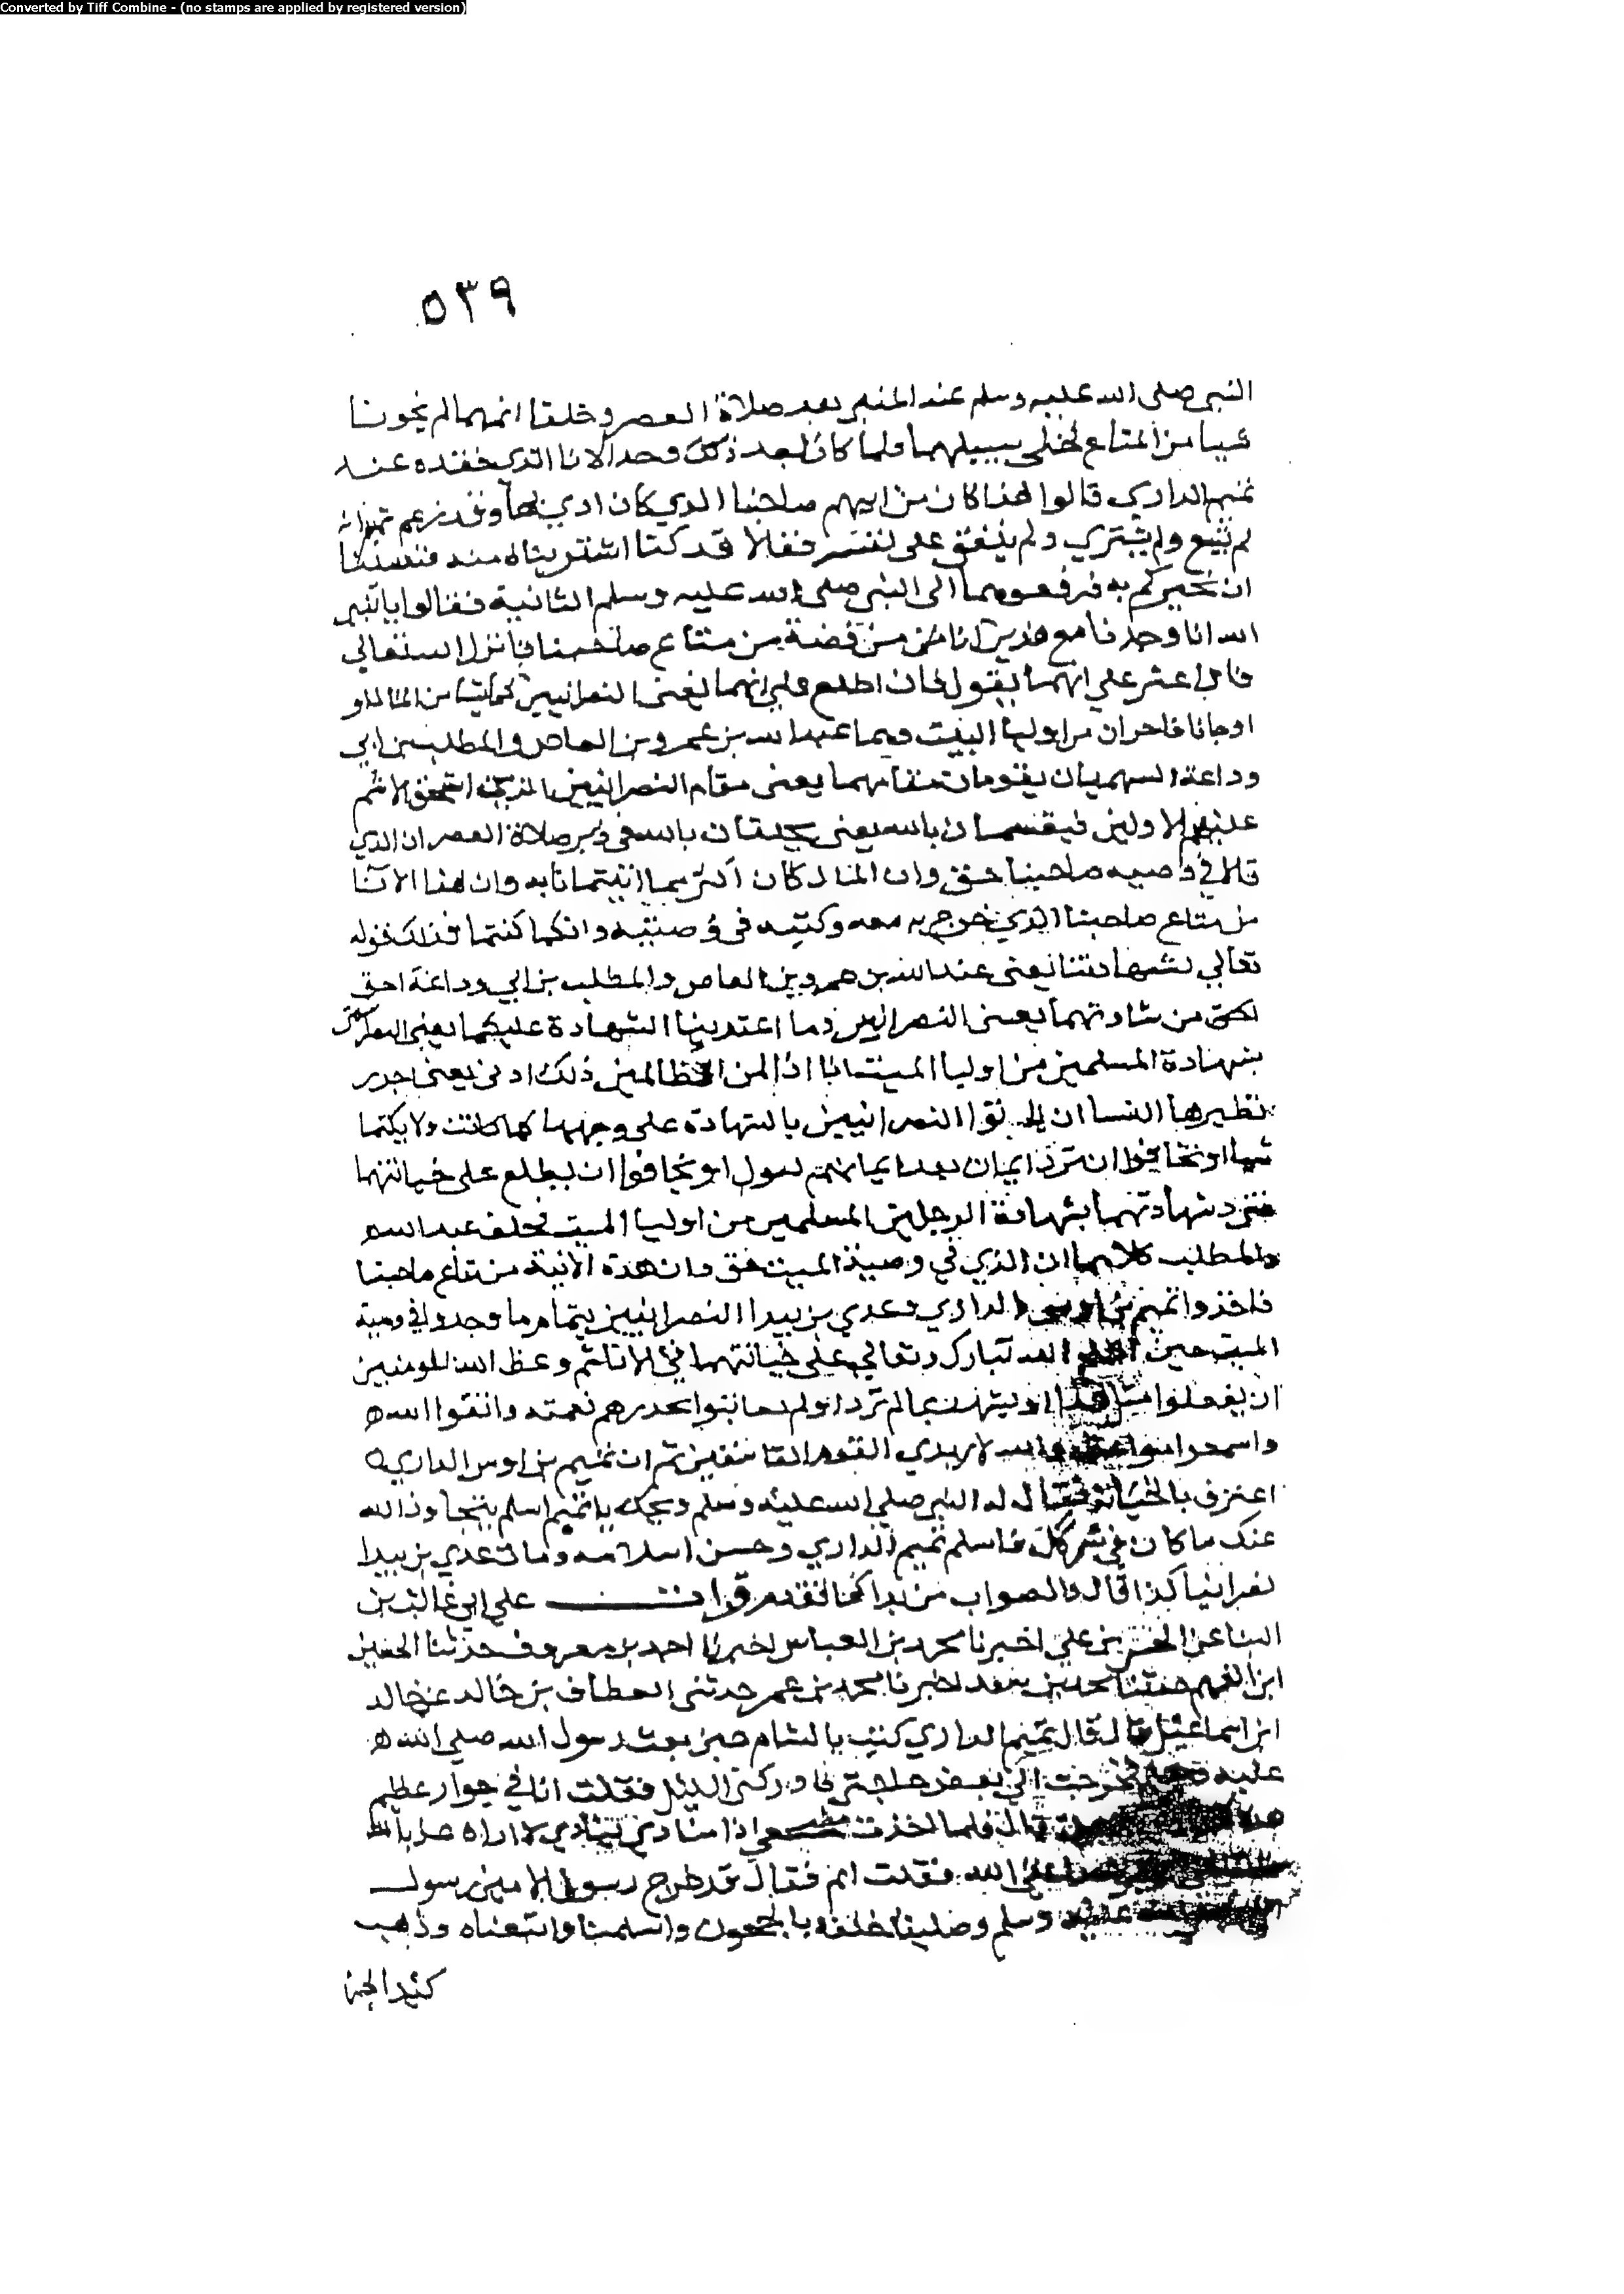 Converted by Tiff Combine - (no stamps are applied by registered version)
٥٣٩
النبي صلى الله عليه وسلم عند المنبر بعد صلاة العصر وحلفا انهما لم يخونا
شيا من المتاع فخلى سبيلهما فلما كان بعد ذلك وجد الانا الذي فقده عند
تميم الداري قالوا هذا كان من انية صاحبنا الذي كان ادي بها وقد زعم تميم انه
لم يبيع ولم يشتري ولم ينفق على نفسه فقالا قد كنا اشتريناه منه فنسينا
ان نخبركم به فرفعوهما الى النبي صلى الله عليه وسلم الثانية فقالوا يا نبي
الله انا وجدنا مع هذين انا من فضة من متاع صاحبنا فانزل الله تعالى
فان عثر على انهما يقول فان اطلع على انهما يعني النصرانيين كتما شيا من المال او
او خانا فاخران من اوليا الميت وهما عبد الله بن عمرو بن العاص والمطلب بن ابي
وداعة السهميان يقومان مقامهما يعني مقام النصرانيين الذين استحق الاثم
عليهم الاولين فيقسمان بالله يعني يحلفان بالله في دبر صلاة العصر ان الذي
قالا في وصيه صاحبنا حق وان المال كان اكثر مما اتيتمانا به وان هذا الانا
من متاع صاحبنا الذي خرج به معه وكتبه في وصيته وانكما خنتما فذلك قوله
تعالي لشهادتنا يعني عبد الله بن عمرو بن العاص والمطلب بن ابي وداعة احق
من شهادتهما يعني النصرانيين وما اعتدينا الشهادة عليكما يعني
بشهادة المسلمين من اوليا الميت انا اذا لمن الظالمين ذلك ادنى يعني اجدر
نظيرها النسا ان ياتوا النصرانيين بالشهادة على وجهها كما كانت ولا يكتما
شيا او يخافوا ان ترد ايمان بعد ايمانهم يقول او يخافوا ان يطلع على خيانتهما
فترد شهادتهما بشهادة الرجلين المسلمين من اوليا الميت فحلف عبد الله
والمطلب كلاهما ان الذي في وصية الميت حق وان هذه الانية من متاع صاحبنا
فاخذوا تميم بن اوس الداري وعدي بن بيدا النصرانيين بتمام ما وجدوا في وصية
الميت حين اطلع الله تبارك وتعالي على خيانتهما في الانا ثم وعظ الله المومنين
ان يفعلوا مثل هذا او يشهدوا بما لم يحذرهم نقمته واتقوا الله
واسمعوا والله لا يهدي القوم الفاسقين ثم ان تميم بن اوس الداري
اعترف بالخيانة فقال له النبي صلى الله عليه وسلم ويحك يا تميم اسلم يتجاوز الله
عنك ما كان في شركك فاسلم تميم الداري وحسن اسلامه ومات عدي بن بيدا
نصرانيا كذا قال والصواب بن بدا كما تقدم قرات على ابي غالب بن
البنا عن الحسن بن علي اخبرنا محمد بن العباس اخبرنا احمد بن معروف حدثنا الحسين
ابن الفهم حدثنا محمد بن سعد اخبرنا محمد بن عمر حدثني العطاف بن خالد عن خالد
ابن اسماعيل قال قال تميم الداري كنت بالشام حين بعث رسول الله صلى الله
عليه فخرجت الى بعض حاجتي فادركني الليل فقلت انا في جوار عظيم
قال فلما اخذت مضجعي اذا منادي ينادي لا اراه عذ بالله
على الله فقلت ايم فقال قد خرج رسول الاميين رسول
عليه وسلم وصلينا خلفه بالحجون واسلمنا واتبعناه وذهب
كيد الجن